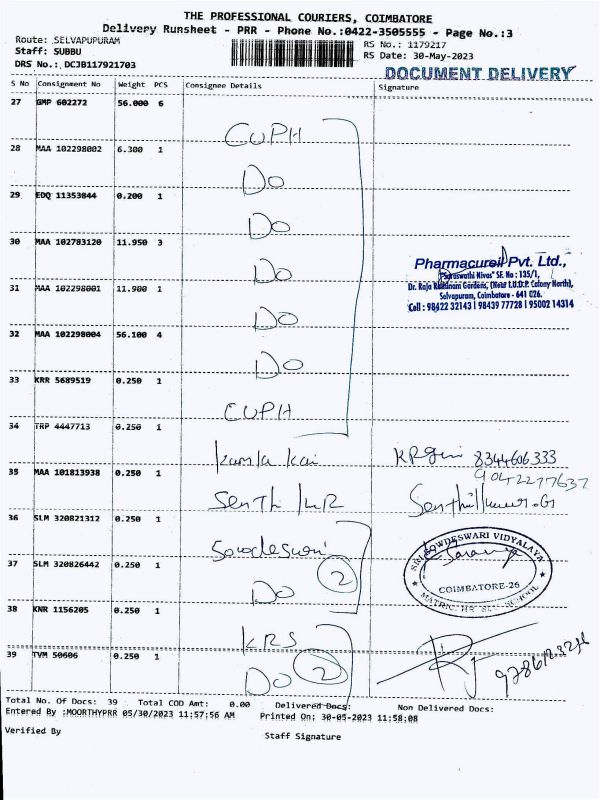 THE PROFESSIONAL COURIERS, COIMBATORE
Delivery Runsheet - PRR - Phone No.:0422-3505555 - Page No.:3
Route: SELVAPUPURAM
RS No.: 1179217
Staff: SUBBU
RS Date: 30-May-2023
DRS No.: DCJB117921703
DOCUMENT DELIVERY
S No Consignment No Weight PCS Consignee Details Signature
27 GMP 602272 56.000 6
CUPH
28 MAA 102298002 6.300 1
Do
29 EDQ 11353844 0.200 1
Do
30 MAA 102783120 11.950 3
Do
Pharmacureil Pvt. Ltd.,
"Saraswathi Nivas" SF. No : 135/1,
Dr. Raja Rathinam Gardens, (Near I.U.D.P. Colony North),
Selvapuram, Coimbatore - 641 026.
Cell : 98422 32143 | 98439 77728 | 95002 14314
31 MAA 102298001 11.900 1
Do
32 MAA 102298004 56.100 4
Do
33 KRR 5689519 0.250 1
CUPH
34 TRP 4447713 0.250 1
8344606333
35 MAA 101813938 0.250 1
9042277637
Senthilkumar.G
36 SLM 320821312 0.250 1
SRI SOWDESWARI VIDYALAYA
COIMBATORE-26
MATRIC. HR. SEC. SCHOOL
37 SLM 320826442 0.250 1
Do 2
38 KNR 1156205 0.250 1
KRS
39 TVM 50606 0.250 1
Do 2
Total No. Of Docs: 39 Total COD Amt: 0.00 Delivered Docs: Non Delivered Docs:
Entered By :MOORTHYPRR 05/30/2023 11:57:56 AM Printed On: 30-05-2023 11:58:08
Verified By
Staff Signature